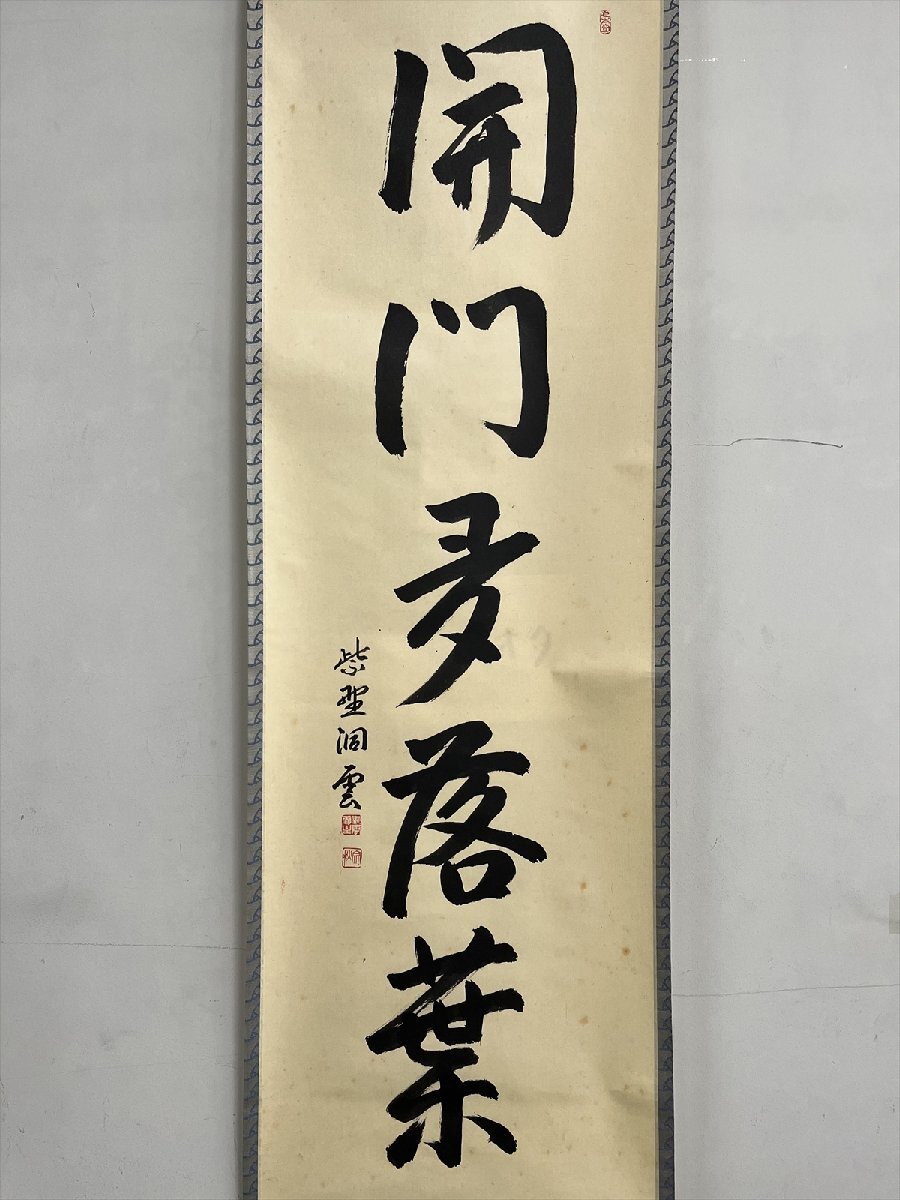 開門多落葉
紫野洞雲